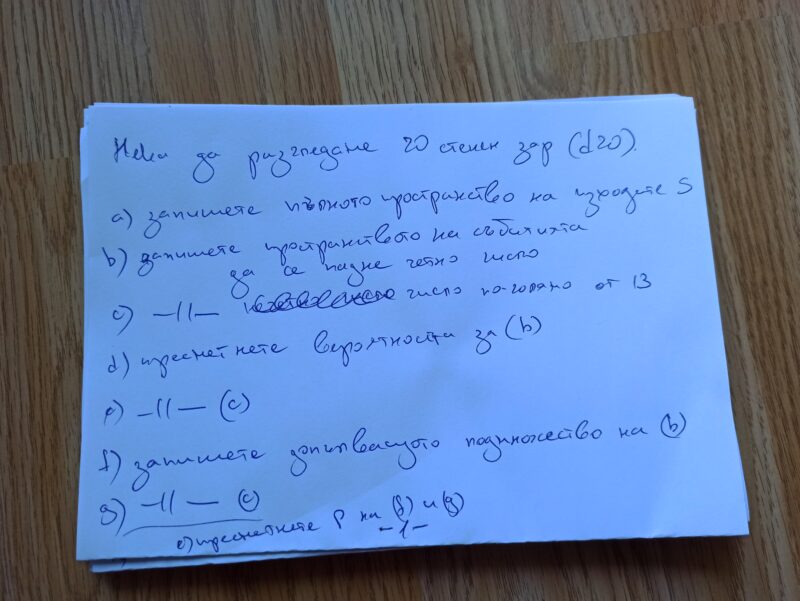 Нека да разгледаме 20 стенен зар (d20).
a) запишете пълното пространство на изходите S
b) запишете пространството на събитията
да се падне четно число
c) —||— число по-голямо от 13
d) пресметнете вероятността за (b)
e) —||— (c)
f) запишете допълващото подмножество на (b)
g) —||— (c)
пресметнете P на (f) и (g)